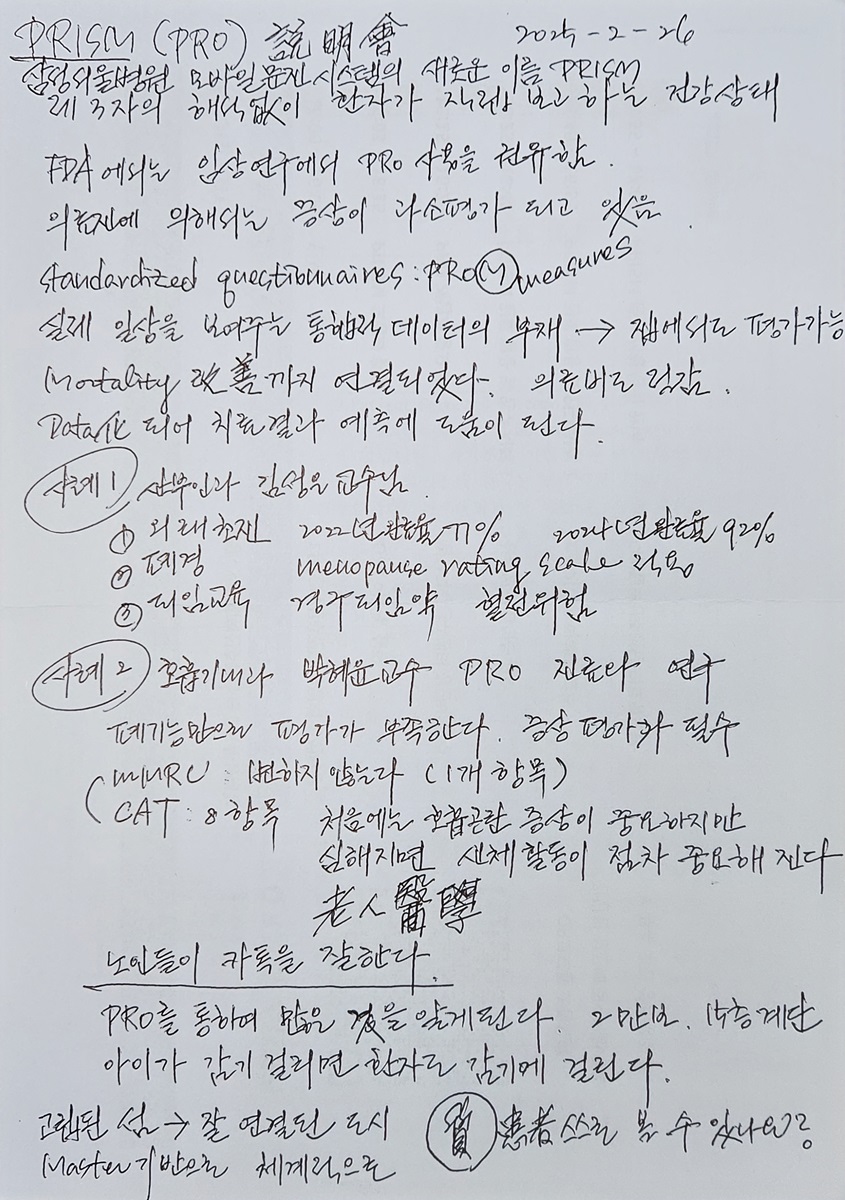 PRISM (PRO) 説明會 2025-2-26
삼성서울병원 모바일문진시스템의 새로운 이름 PRISM
제 3자의 해석없이 환자가 직접 보고하는 건강상태
FDA에서는 임상연구에서 PRO 사용을 권유함.
의료진에 의해서는 증상이 과소평가 되고 있음.
standardized questionnaires : PRO(M) measures
실제 일상을 보여주는 통합적 데이터의 부재 → 집에서도 평가가능
Mortality 改善까지 연결되었다. 의료비도 절감.
Data化 되어 치료결과 예측에 도움이 된다.
사례 1 산부인과 김성은 교수님
① 외래초진 2022년 완료율 77% 2024년 완료율 92%
② 폐경 menopause rating scale 적용
③ 피임교육 경구피임약 혈전위험
사례 2 호흡기내과 박혜윤 교수 PRO 진료와 연구
폐기능만으로 평가가 부족하다. 증상 평가가 필수
mMRC : 변하지 않는다 (1개 항목)
CAT : 8 항목 처음에는 호흡곤란 증상이 중요하지만
심해지면 신체활동이 점차 중요해 진다
老人醫學
노인들이 카톡을 잘한다.
PRO를 통하여 많은 것을 알게된다. 2만보. 15층계단
아이가 감기 걸리면 환자도 감기에 걸린다.
고립된 섬 → 잘 연결된 도시 質 患者 스스로 볼 수 있나요?
Master 기반으로 체계적으로